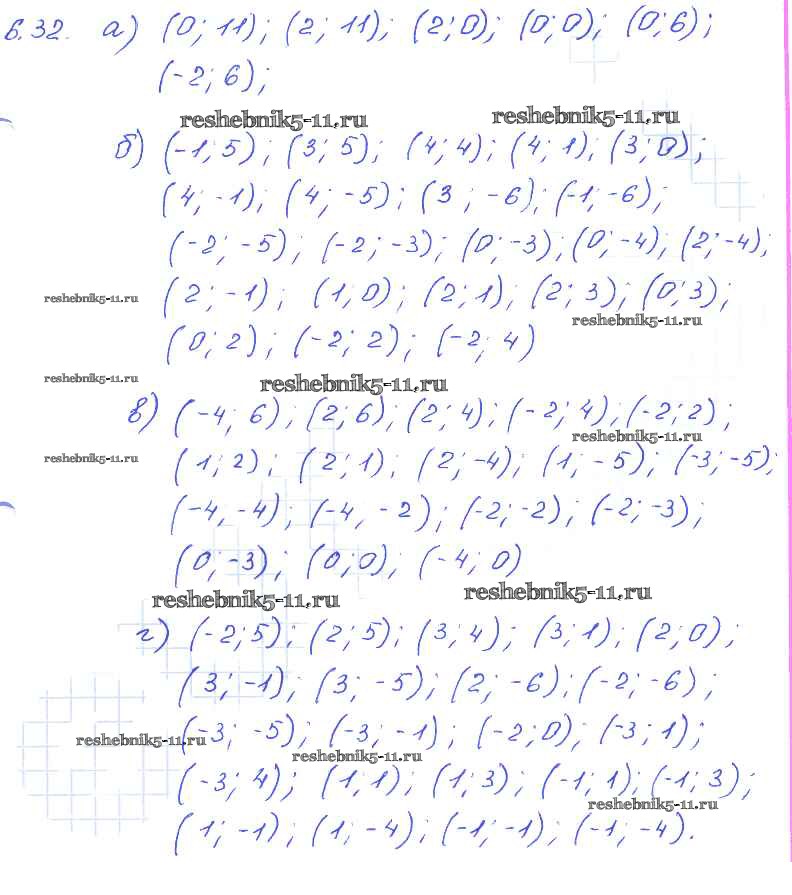 6.32. а) (0; 11); (2; 11); (2; 0); (0; 0); (0; 6);
(-2; 6);
reshebnik5-11.ru reshebnik5-11.ru
б) (-1; 5); (3; 5); (4; 4); (4; 1); (3; 0);
(4; -1); (4; -5); (3; -6); (-1; -6);
(-2; -5); (-2; -3); (0; -3); (0; -4); (2; -4);
reshebnik5-11.ru (2; -1); (1; 0); (2; 1); (2; 3); (0; 3);
reshebnik5-11.ru
(0; 2); (-2; 2); (-2; 4)
reshebnik5-11.ru reshebnik5-11.ru
в) (-4; 6); (2; 6); (2; 4); (-2; 4); (-2; 2);
reshebnik5-11.ru
reshebnik5-11.ru (1; 2); (2; 1); (2; -4); (1; -5); (-3; -5);
(-4, -4); (-4, -2); (-2; -2); (-2; -3);
(0; -3); (0; 0); (-4; 0)
reshebnik5-11.ru reshebnik5-11.ru
г) (-2; 5); (2; 5); (3; 4); (3; 1); (2; 0);
(3; -1); (3; -5); (2; -6); (-2; -6);
(-3; -5); (-3; -1); (-2; 0); (-3; 1);
reshebnik5-11.ru reshebnik5-11.ru
(-3; 4); (1; 1); (1; 3); (-1; 1); (-1; 3);
reshebnik5-11.ru
(1; -1); (1; -4); (-1; -1); (-1; -4).